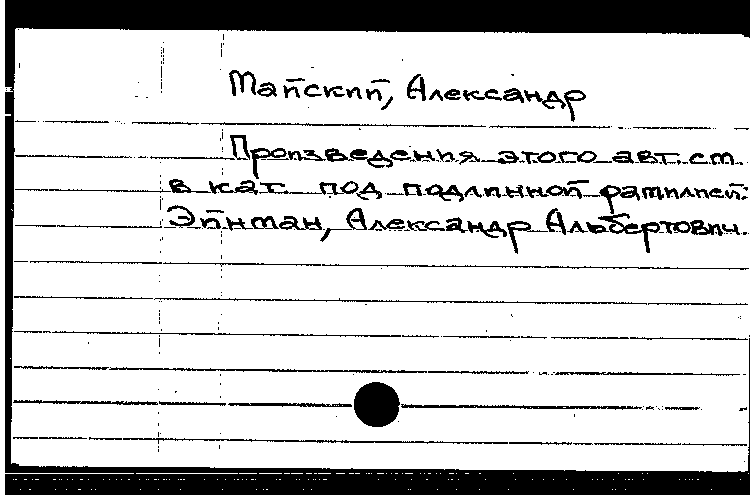 Майский, Александр
Произведения этого авт. см.
в кат. под подлинной фамилией:
Эйнман, Александр Альбертович.